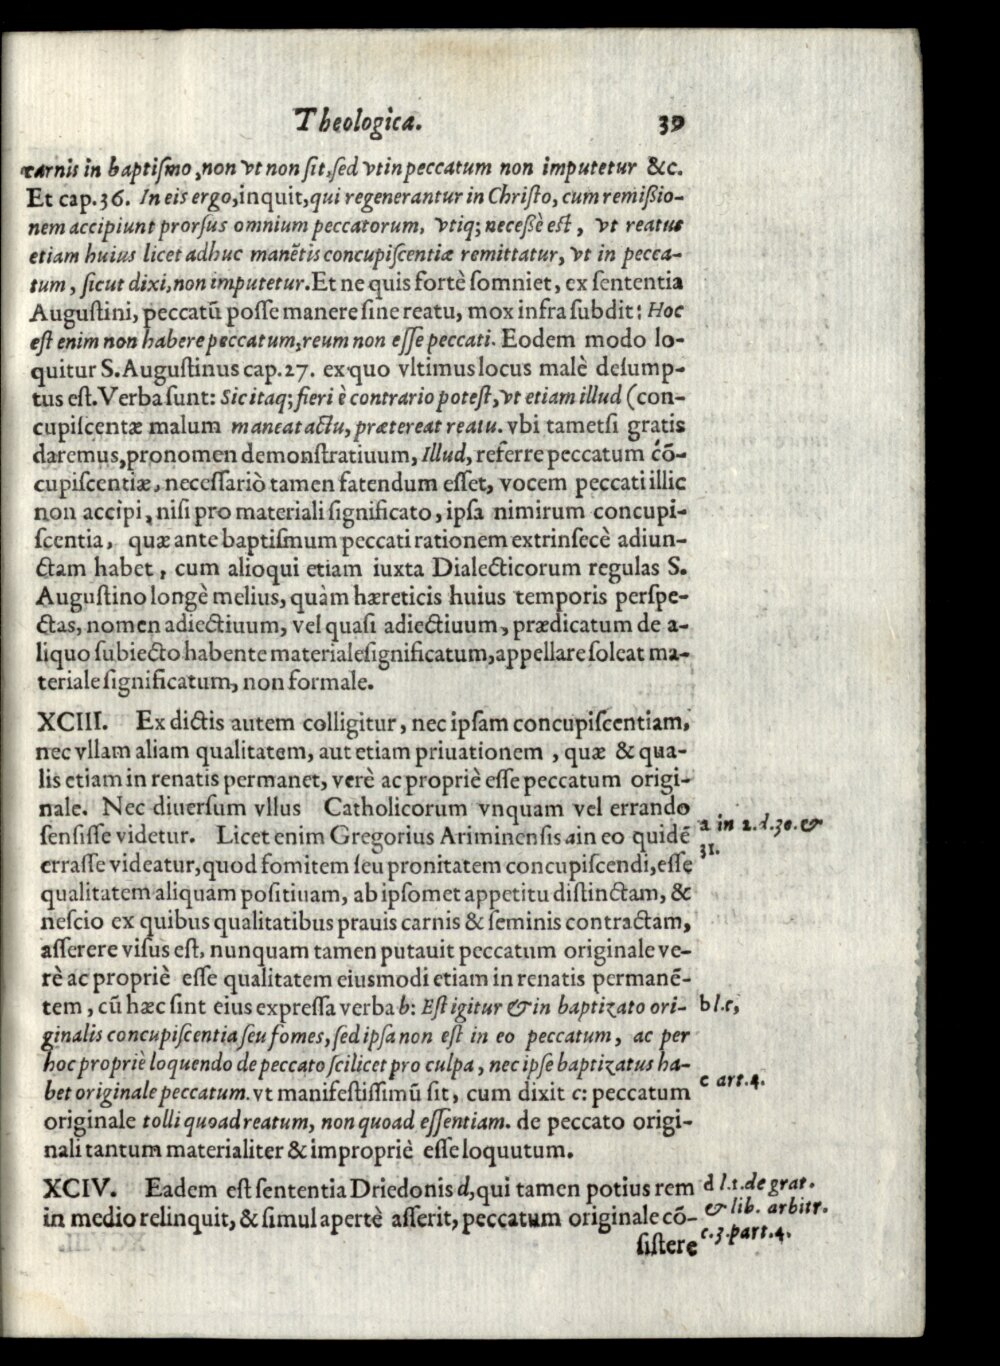 Theologica. 39
carnis in baptiſmo, non vt non ſit, ſed vt in peccatum non imputetur &c.
Et cap. 36. In eis ergo, inquit, qui regenerantur in Chriſto, cum remißio-
nem accipiunt prorſus omnium peccatorum, vtiq; neceßè eſt, vt reatus
etiam huius licet adhuc manẽtis concupiſcentiæ remittatur, vt in pecca-
tum, ſicut dixi, non imputetur. Et ne quis fortè ſomniet, ex ſententia
Auguſtini, peccatũ poſſe manere ſine reatu, mox infra ſubdit: Hoc
eſt enim non habere peccatum, reum non eſſe peccati. Eodem modo lo-
quitur S. Auguſtinus cap. 27. ex quo vltimus locus malè deſump-
tus eſt. Verba ſunt: Sic itaq; fieri è contrario poteſt, vt etiam illud (con-
cupiſcentæ malum maneat actu, prætereat reatu. vbi tametſi gratis
daremus, pronomen demonſtratiuum, Illud, referre peccatum cõ-
cupiſcentiæ, neceſſariò tamen fatendum eſſet, vocem peccati illic
non accipi, niſi pro materiali ſignificato, ipſa nimirum concupi-
ſcentia, quæ ante baptiſmum peccati rationem extrinſecè adiun-
ctam habet, cum alioqui etiam iuxta Dialecticorum regulas S.
Auguſtino longè melius, quàm hæreticis huius temporis perſpe-
ctas, nomen adiectiuum, vel quaſi adiectiuum, prædicatum de a-
liquo ſubiecto habente materiale ſignificatum, appellare ſoleat ma-
teriale ſignificatum, non formale.
XCIII. Ex dictis autem colligitur, nec ipſam concupiſcentiam,
nec vllam aliam qualitatem, aut etiam priuationem, quæ & qua-
lis etiam in renatis permanet, verè ac propriè eſſe peccatum origi-
nale. Nec diuerſum vllus Catholicorum vnquam vel errando
ſenſiſſe videtur. Licet enim Gregorius Ariminenſis a in eo quidẽ
a in 2. d. 30. &
31.
erraſſe videatur, quod fomitem ſeu pronitatem concupiſcendi, eſſe
qualitatem aliquam poſitiuam, ab ipſomet appetitu diſtinctam, &
neſcio ex quibus qualitatibus prauis carnis & ſeminis contractam,
aſſerere viſus eſt, nunquam tamen putauit peccatum originale ve-
rè ac propriè eſſe qualitatem eiusmodi etiam in renatis permanẽ-
tem, cũ hæc ſint eius expreſſa verba b: Eſt igitur & in baptizato ori-
b l. c,
ginalis concupiſcentia ſeu fomes, ſed ipſa non eſt in eo peccatum, ac per
hoc propriè loquendo de peccato ſcilicet pro culpa, nec ipſe baptizatus ha-
bet originale peccatum. vt manifeſtiſſimũ ſit, cum dixit c: peccatum
c art. 4.
originale tolli quoad reatum, non quoad eſſentiam. de peccato origi-
nali tantum materialiter & impropriè eſſe loquutum.
XCIV. Eadem eſt ſententia Driedonis d, qui tamen potius rem
in medio relinquit, & ſimul apertè aſſerit, peccatum originale cõ-
d l. 1. de grat.
& lib. arbitr.
c. 3. part. 4.
ſiſtere